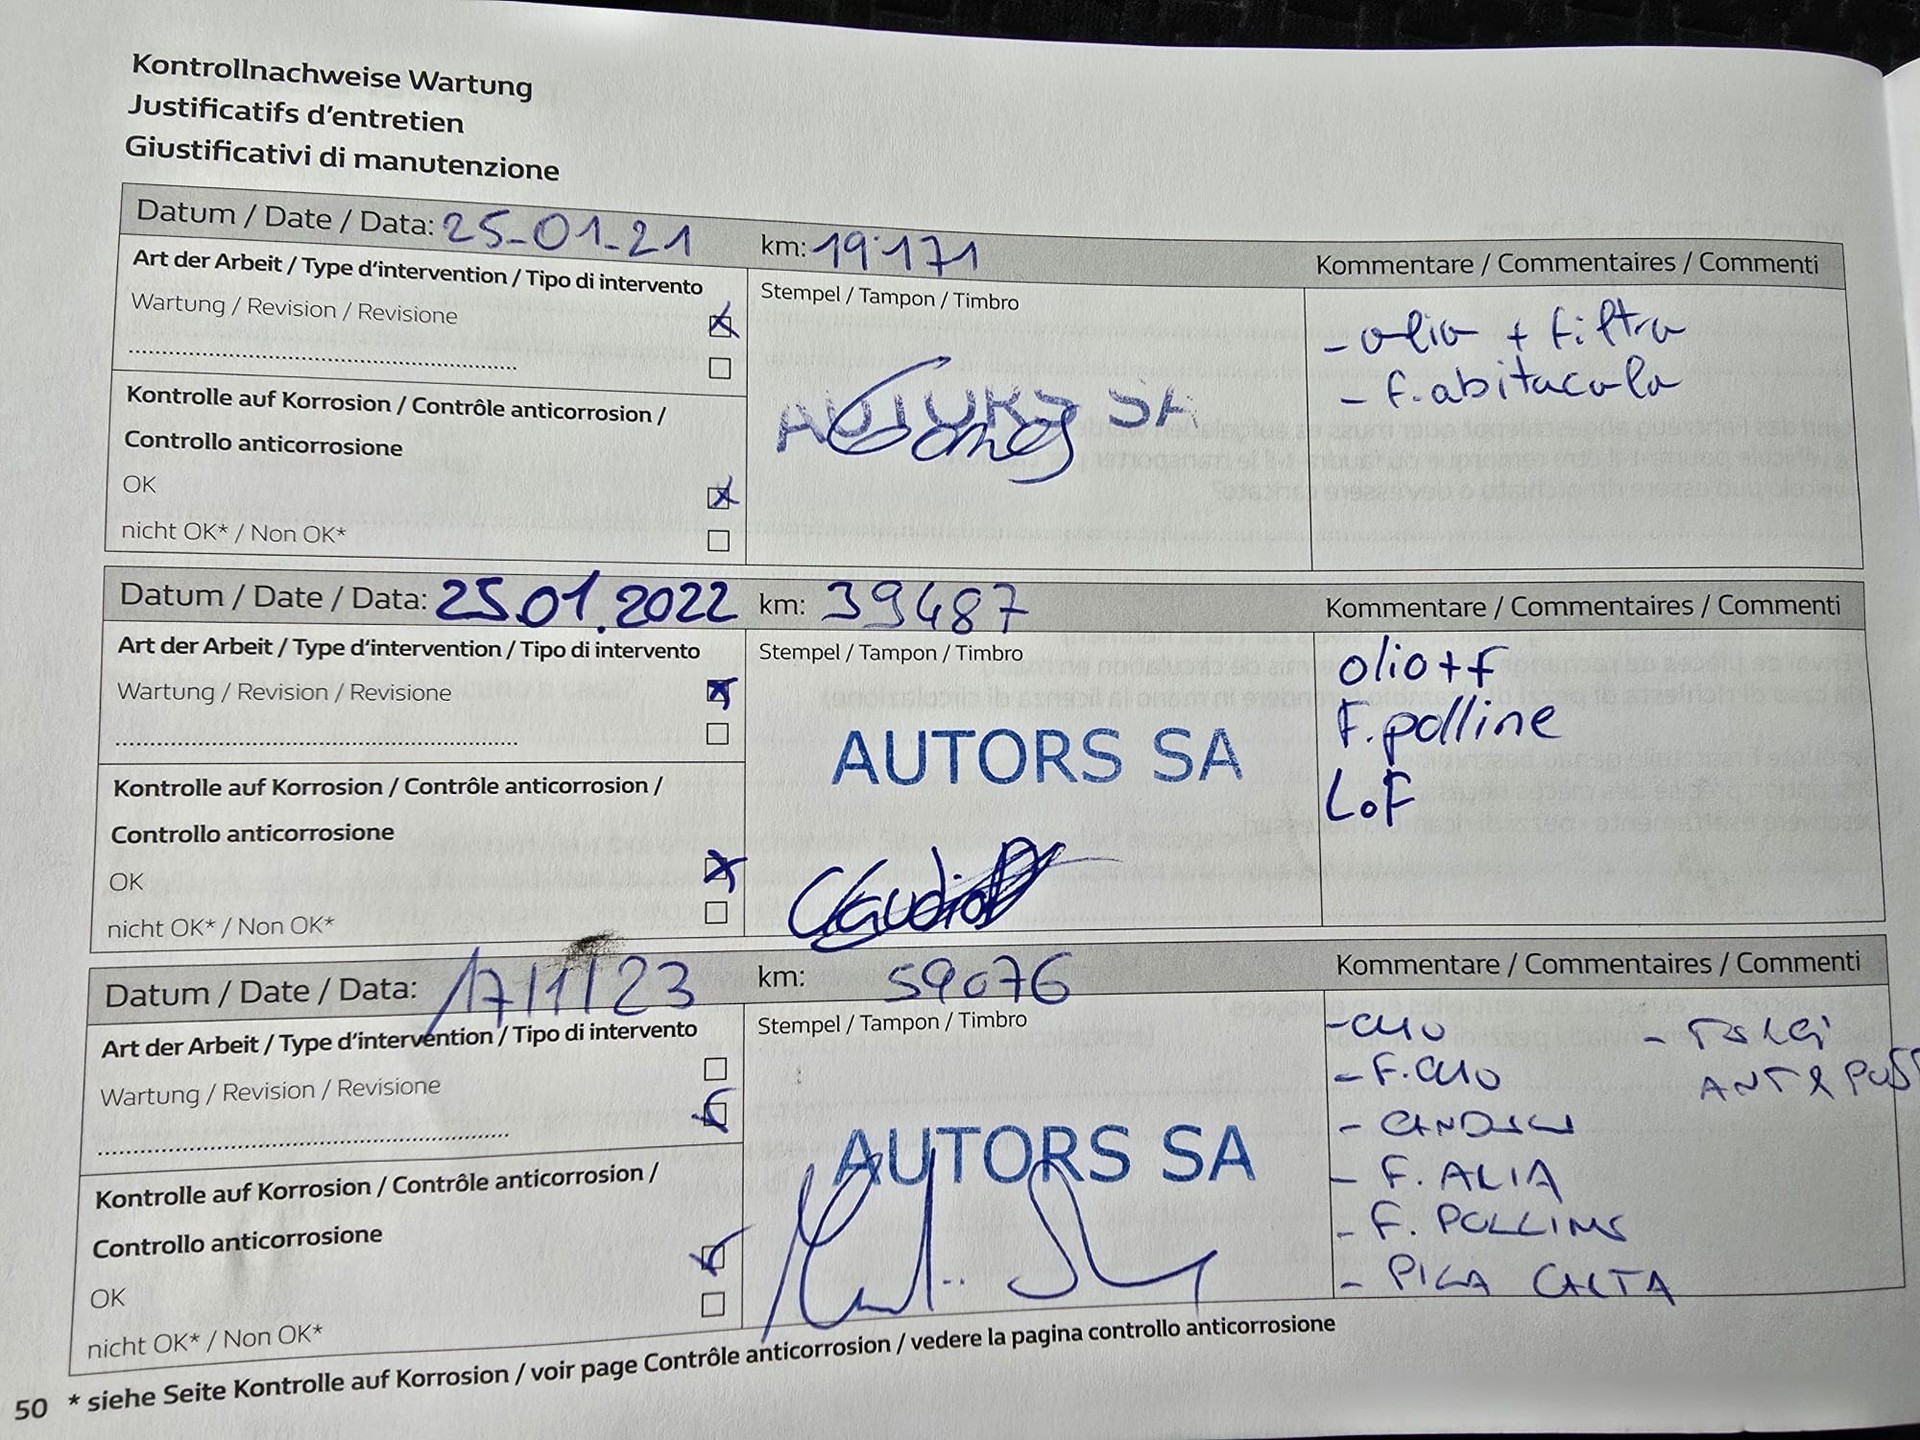 Kontrollnachweise Wartung
Justificatifs d'entretien
Giustificativi di manutenzione
Datum / Date / Data: 25-01-21 km: 19'171 Kommentare / Commentaires / Commenti
Art der Arbeit / Type d'intervention / Tipo di intervento
Stempel / Tampon / Timbro
Wartung / Revision / Revisione
- olio + filtro
- f. abitacolo
Kontrolle auf Korrosion / Contrôle anticorrosione /
Controllo anticorrosione
AUTORS SA
OK
nicht OK* / Non OK*
Datum / Date / Data: 25.01.2022 km: 39487 Kommentare / Commentaires / Commenti
Art der Arbeit / Type d'intervention / Tipo di intervento
Stempel / Tampon / Timbro
Wartung / Revision / Revisione
olio+f
F. polline
LoF
AUTORS SA
Kontrolle auf Korrosion / Contrôle anticorrosione /
Controllo anticorrosione
OK
Claudio
nicht OK* / Non OK*
Datum / Date / Data: 17/1/23 km: 59076 Kommentare / Commentaires / Commenti
Art der Arbeit / Type d'intervention / Tipo di intervento
Stempel / Tampon / Timbro
Wartung / Revision / Revisione
- F.
- F. ARIA
- F.
-
AUTORS SA
Kontrolle auf Korrosion / Contrôle anticorrosione /
Controllo anticorrosione
OK
nicht OK* / Non OK*
50 * siehe Seite Kontrolle auf Korrosion / voir page Contrôle anticorrosion / vedere la pagina controllo anticorrosione